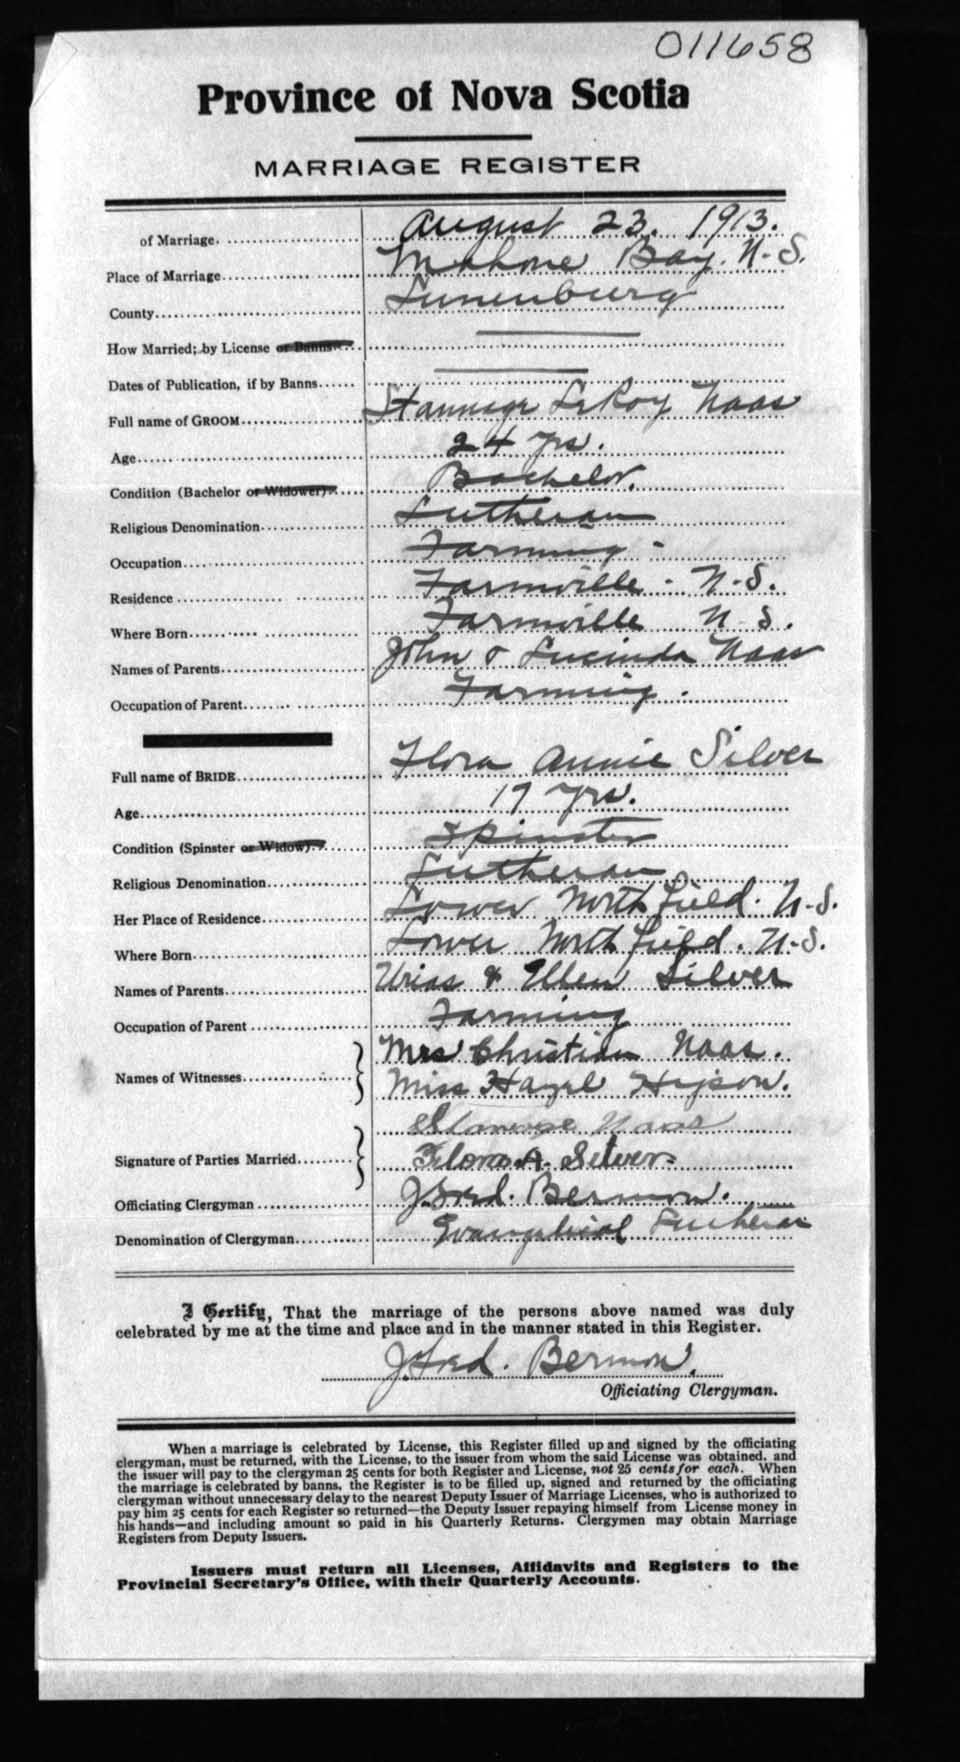 011658
Province of Nova Scotia
MARRIAGE REGISTER
of Marriage. August 23. 1913.
Place of Marriage Mahone Bay. N.S.
County Lunenburg
How Married; by License or Banns
Dates of Publication, if by Banns
Full name of GROOM LeRoy Naas
Age 24 yrs.
Condition (Bachelor or Widower) Bachelor.
Religious Denomination Lutheran
Occupation Farming -
Residence Farmville - N.S.
Where Born Farmville N.S.
Names of Parents John & Lucinda Naas
Occupation of Parent Farming.
Full name of BRIDE Flora Annie Silver
Age 17 yrs.
Condition (Spinster or Widow) Spinster
Religious Denomination Lutheran
Her Place of Residence Lower Northfield. N.S.
Where Born Lower Northfield. N.S.
Names of Parents Urias & Ellen Silver
Occupation of Parent Farming
Names of Witnesses Mrs Christian Naas.
Miss Hazel
Naas
Signature of Parties Married Flora A. Silver
Officiating Clergyman J. Fred. Bermon.
Denomination of Clergyman Evangelical Lutheran
I Certify, That the marriage of the persons above named was duly
celebrated by me at the time and place and in the manner stated in this Register.
J. Fred. Bermon.
Officiating Clergyman.
When a marriage is celebrated by License, this Register filled up and signed by the officiating
clergyman, must be returned, with the License, to the issuer from whom the said License was obtained, and
the issuer will pay to the clergyman 25 cents for both Register and License, not 25 cents for each. When
the marriage is celebrated by banns, the Register is to be filled up, signed and returned by the officiating
clergyman without unnecessary delay to the nearest Deputy Issuer of Marriage Licenses, who is authorized to
pay him 25 cents for each Register so returned—the Deputy Issuer repaying himself from License money in
his hands—and including amount so paid in his Quarterly Returns. Clergymen may obtain Marriage
Registers from Deputy Issuers.
Issuers must return all Licenses, Affidavits and Registers to the
Provincial Secretary's Office, with their Quarterly Accounts.